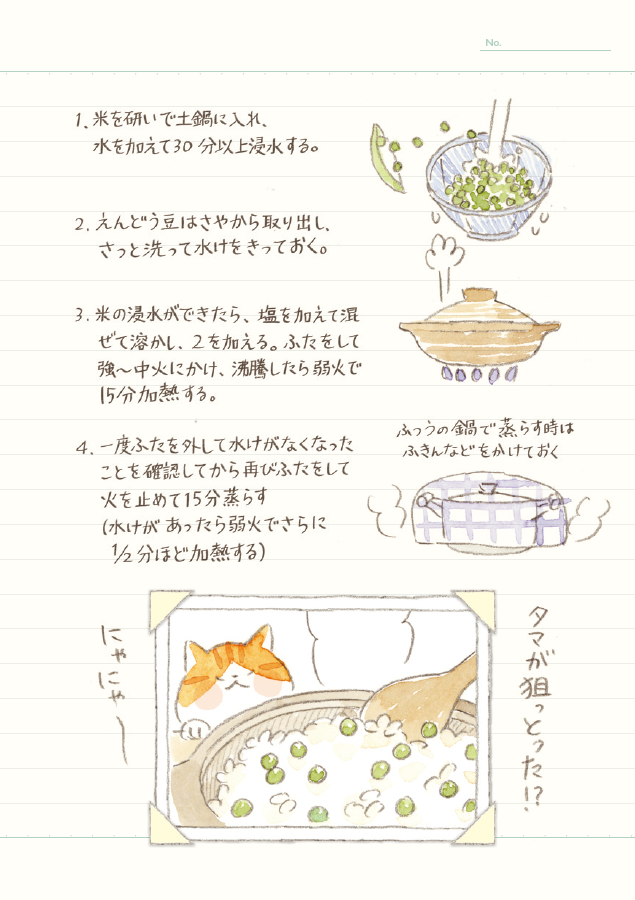 No.
1. 米を研いで土鍋に入れ、
水を加えて30分以上浸水する。
2. えんどう豆はさやから取り出し、
さっと洗って水けをきっておく。
3. 米の浸水ができたら、塩を加えて混
ぜて溶かし、2を加える。ふたをして
強〜中火にかけ、沸騰したら弱火で
15分加熱する。
4. 一度ふたを外して水けがなくなった
ことを確認してから再びふたをして
火を止めて15分蒸らす
(水けがあったら弱火でさらに
1/2分ほど加熱する)
ふつうの鍋で蒸らす時は
ふきんなどをかけておく
にゃにゃ〜
タマが狙っとった!?